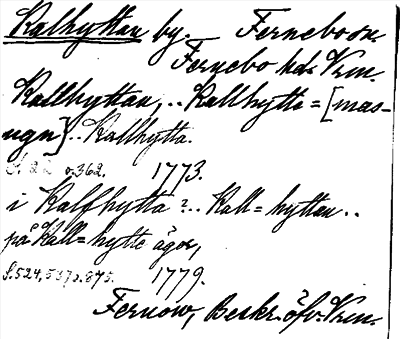 Kalhyttan by. Fernebo sn.
Fernebo hd. Vrm.
Kallhyttan, .. Kallhytte = [mas-
ugn] .. Kallhytta.
S. 22 o. 362. 1773.
i Kalfhytta ? .. Kall = hyttan ..
på Kall = hytte ägor,
S. 524, 537 o. 875. 1779.
Fernow, Beskr. öfv. Vrm.